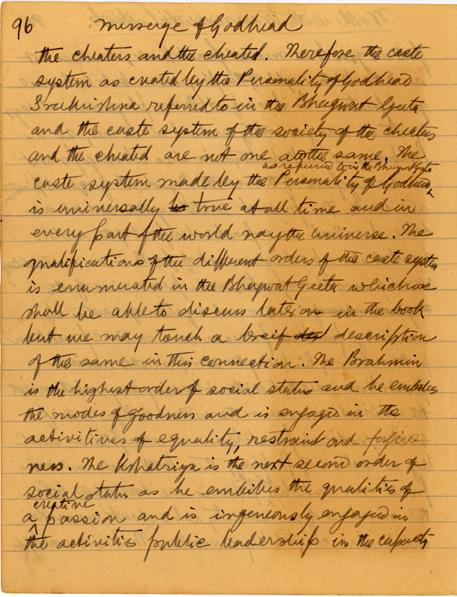 96 Message of Godhead
the cheaters and the cheated. Therefore the caste
system as created by the Personality of Godhead
Srikrishna referred to in the Bhagwat Geeta
and the caste system of the society of the cheaters
and the cheated are not one and the same. The
as referred to in the Bhagwat Geeta
caste system made by the Personality of Godhead
is universally to true at all time and in
every part of the world nay the universe. The
qualifications of the different orders of the caste system
is enumerated in the Bhagwat Geeta which we
shall be able to discuss later on in the book
but we may touch a breif description
of the same in this connection. The Brahmin
is the highest order of social status and he embibes
the modes of goodness and is engaged in the
activities of equality, restraint and forgive
ness. The Kshatriya is the next second order of
social status as he embibes the qualities of
creative
a passion and is ingeneously engaged in
the activities public leadership in the capacity